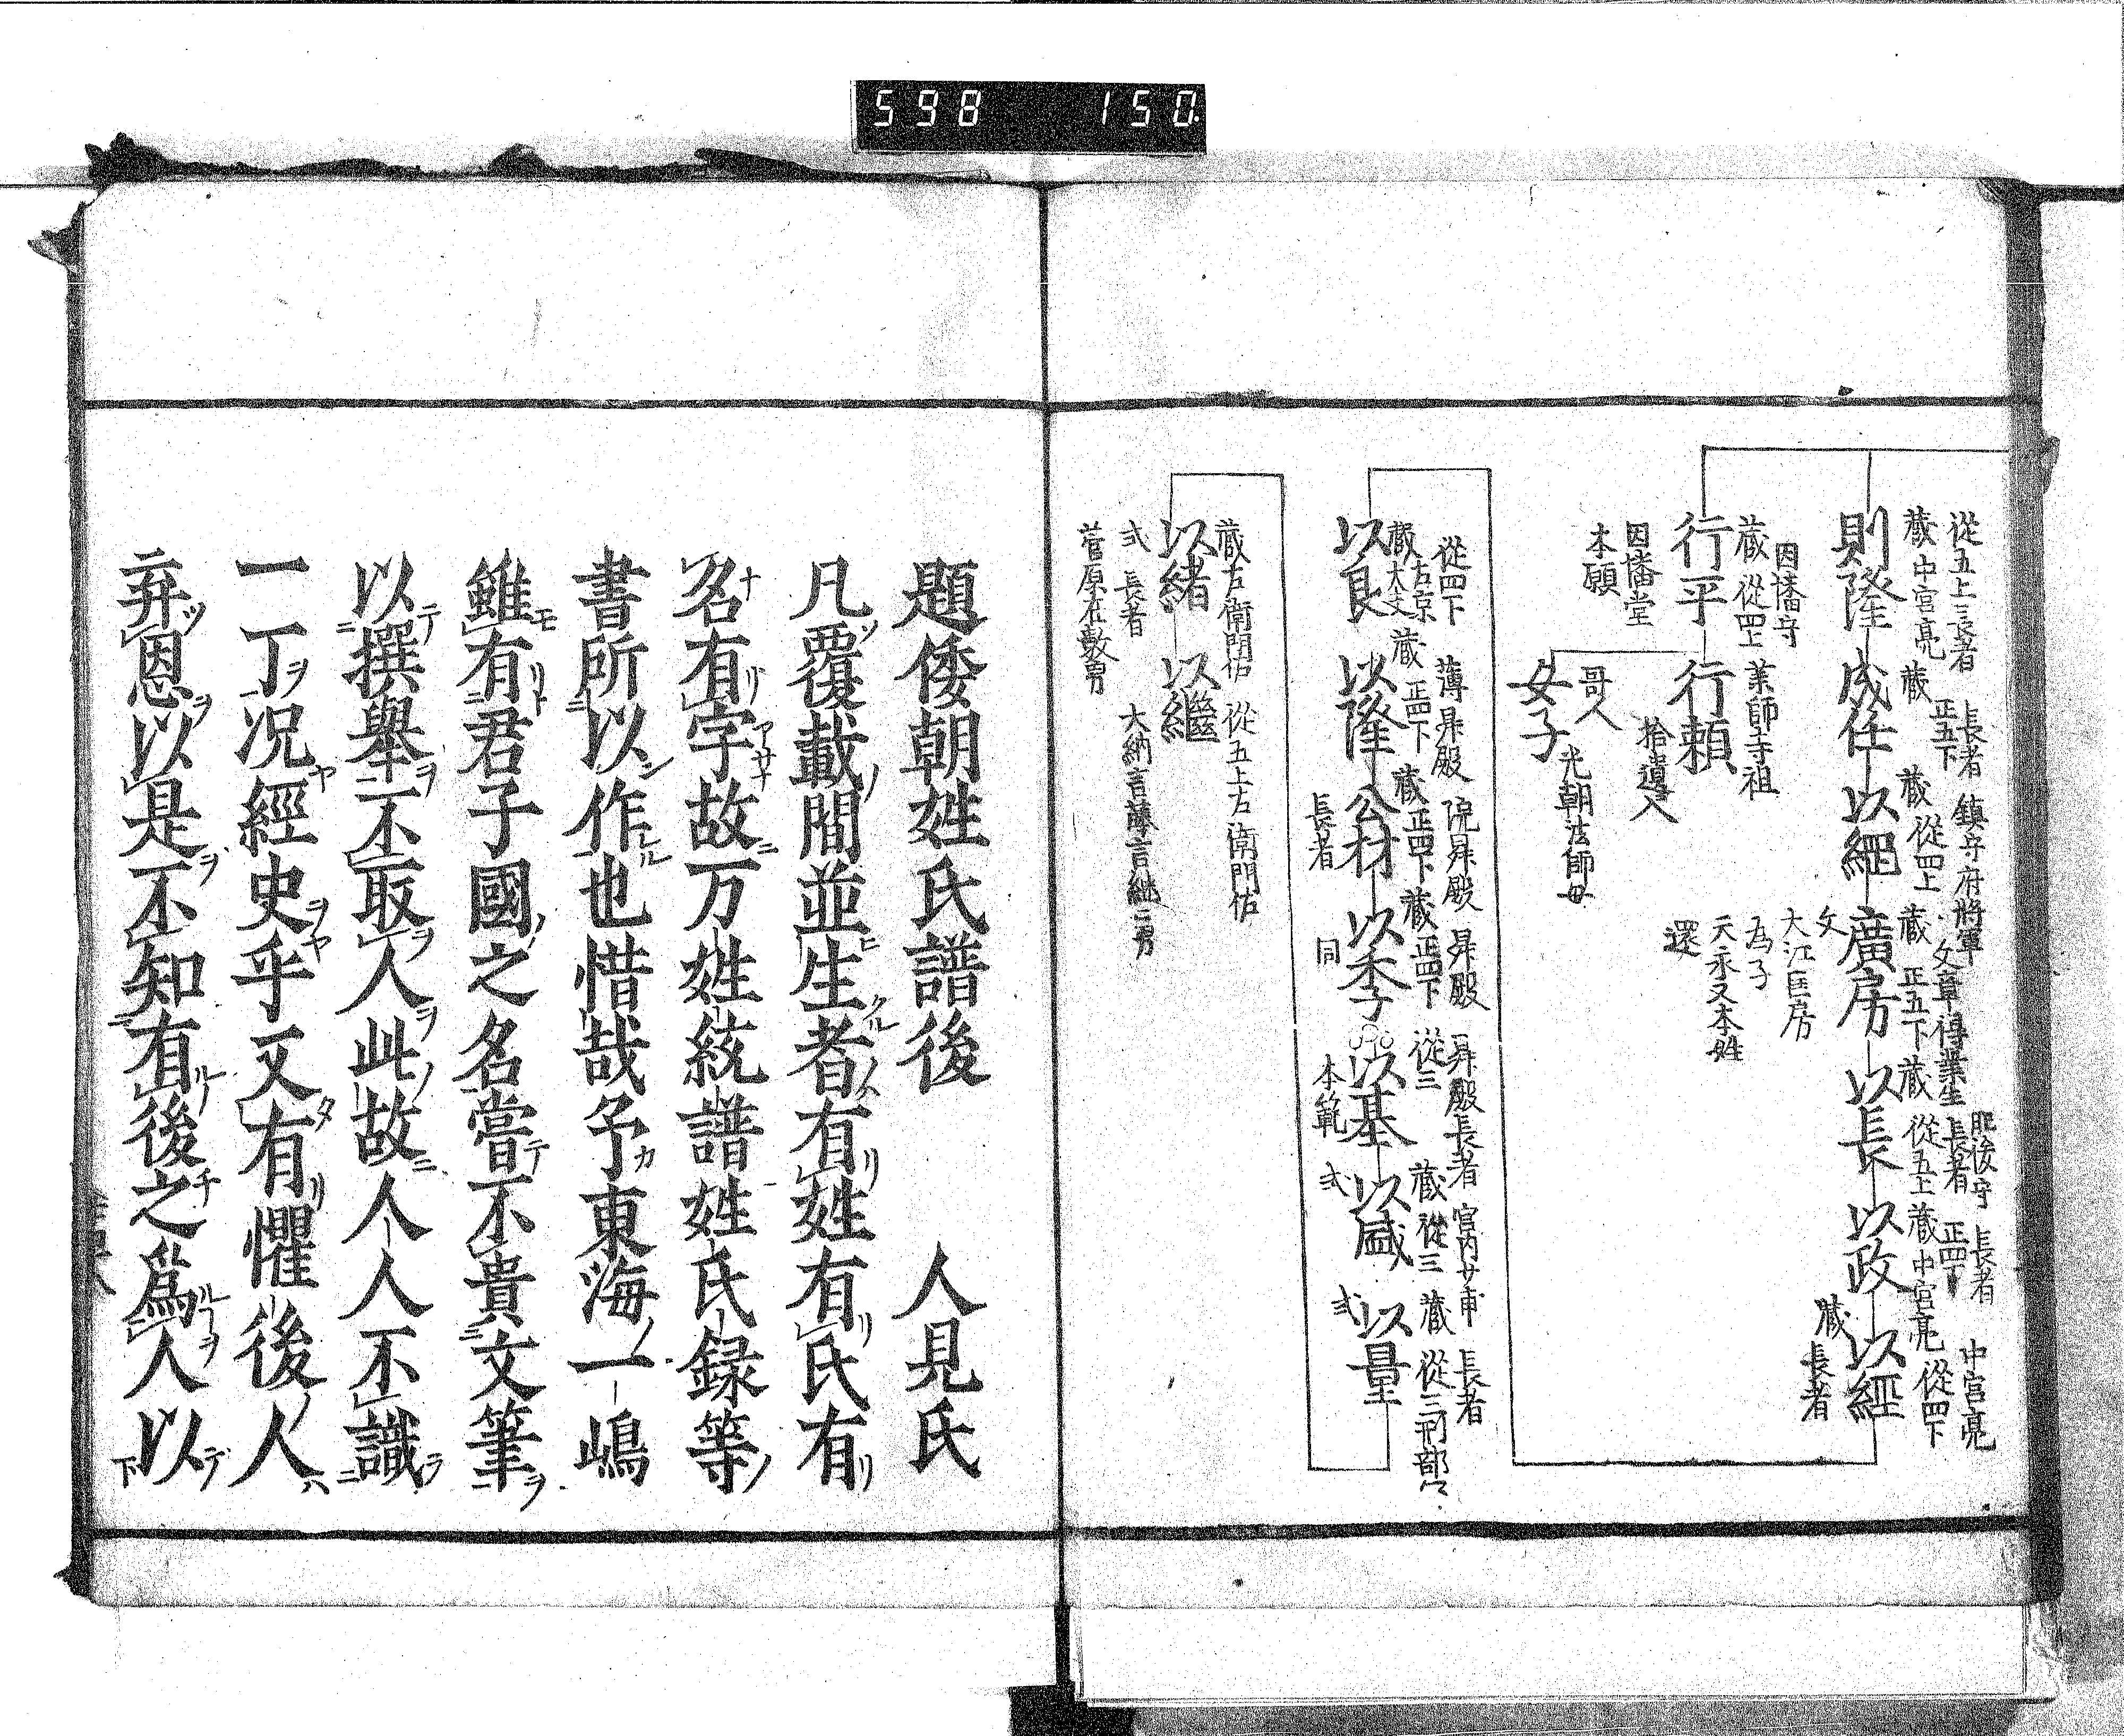 598 150
從五上 長者
藏 中宮亮
則隆
藏 正五下 長者
成任
藏 從四上 鎮守府將軍
以綱
藏 正五下 文章得業生
廣房
文
大江匡房
為子
天永又本姓
還
藏 從五上 長者 肥後守
以長
藏 中宮亮 正四下 長者
以政
從四下 中宮亮
以經
藏
長者
因幡守
藏 從四上
行平
因幡堂
本願
薬師寺祖
行頼
拾遺入
哥人
女子
光朝法師母
從四下
藏 右京大夫
以良
薄 昇殿
藏 正四下
以隆
院昇殿
藏 正四下
公材
長者
昇殿
藏 正四下
以季
同
昇殿 長者
從三
以基
本範
宮内少甫
藏 從三
以盛
式
長者
藏 從三 刑部
以量
式
藏 左衛門佐
以緒
式 長者
菅原在數男
從五上 左衛門佐
以繼
大納言藤言継二男
題倭朝姓氏譜後 人見氏
凡覆載ノ間並生者ノ有リ姓有リ氏有リ
名有リ字故ニ万姓統譜姓氏録等ノ
書所以作ル也惜哉予カ東海ノ一嶋
雖モ有リト君子國ノ之名嘗テ不貴文筆ヲ
以テ撰舉ヲ不取人ヲ此ノ故ニ人人不識ラ
一丁ヲ况ヤ經史ヲヤ乎又タ有リ懼後ノ人ハ
弃ツ恩ヲ以是ヲ不知有ルヿ後之チ爲ルヿヲ人以テ